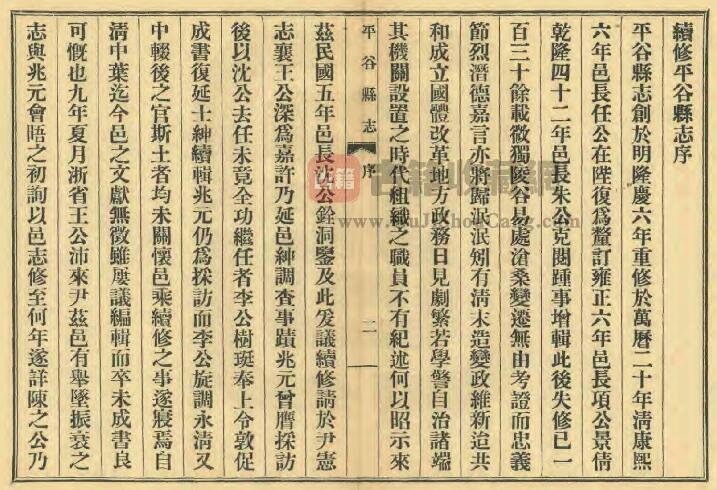 續修平谷縣志序
平谷縣志創於明隆慶六年重修於萬曆二十年清康熙
六年邑長任公在陛復為釐訂雍正六年邑長項公景倩
乾隆四十二年邑長朱公克閱踵事增輯此後失修已一
百三十餘載微獨陵谷易處滄桑變遷無由考證而忠義
節烈潛德嘉言亦將歸泯泯矧有清末造變政維新迨共
和成立國體改革地方政務日見劇繁若學警自治諸端
其機關設置之時代組織之職員不有紀述何以昭示來
平谷縣志 序 二
茲民國五年邑長沈公銓洞鑒及此发議續修請於尹憲
志襄王公深為嘉許乃延邑紳調查事蹟兆元曾膺採訪
後以沈公去任未竟全功繼任者李公樹珽奉上令敦促
成書復延士紳續輯兆元仍為採訪而李公旋調永清又
中輟後之官斯土者均未關懷邑乘續修之事遂寢焉自
清中葉迄今邑之文獻無徵雖屢議編輯而卒未成書良
可慨也九年夏月浙省王公沛來尹茲邑有舉墜振衰之
志與兆元會晤之初詢以邑志修至何年遂詳陳之公乃
古籍收藏網
www.GuJiShouCang.com